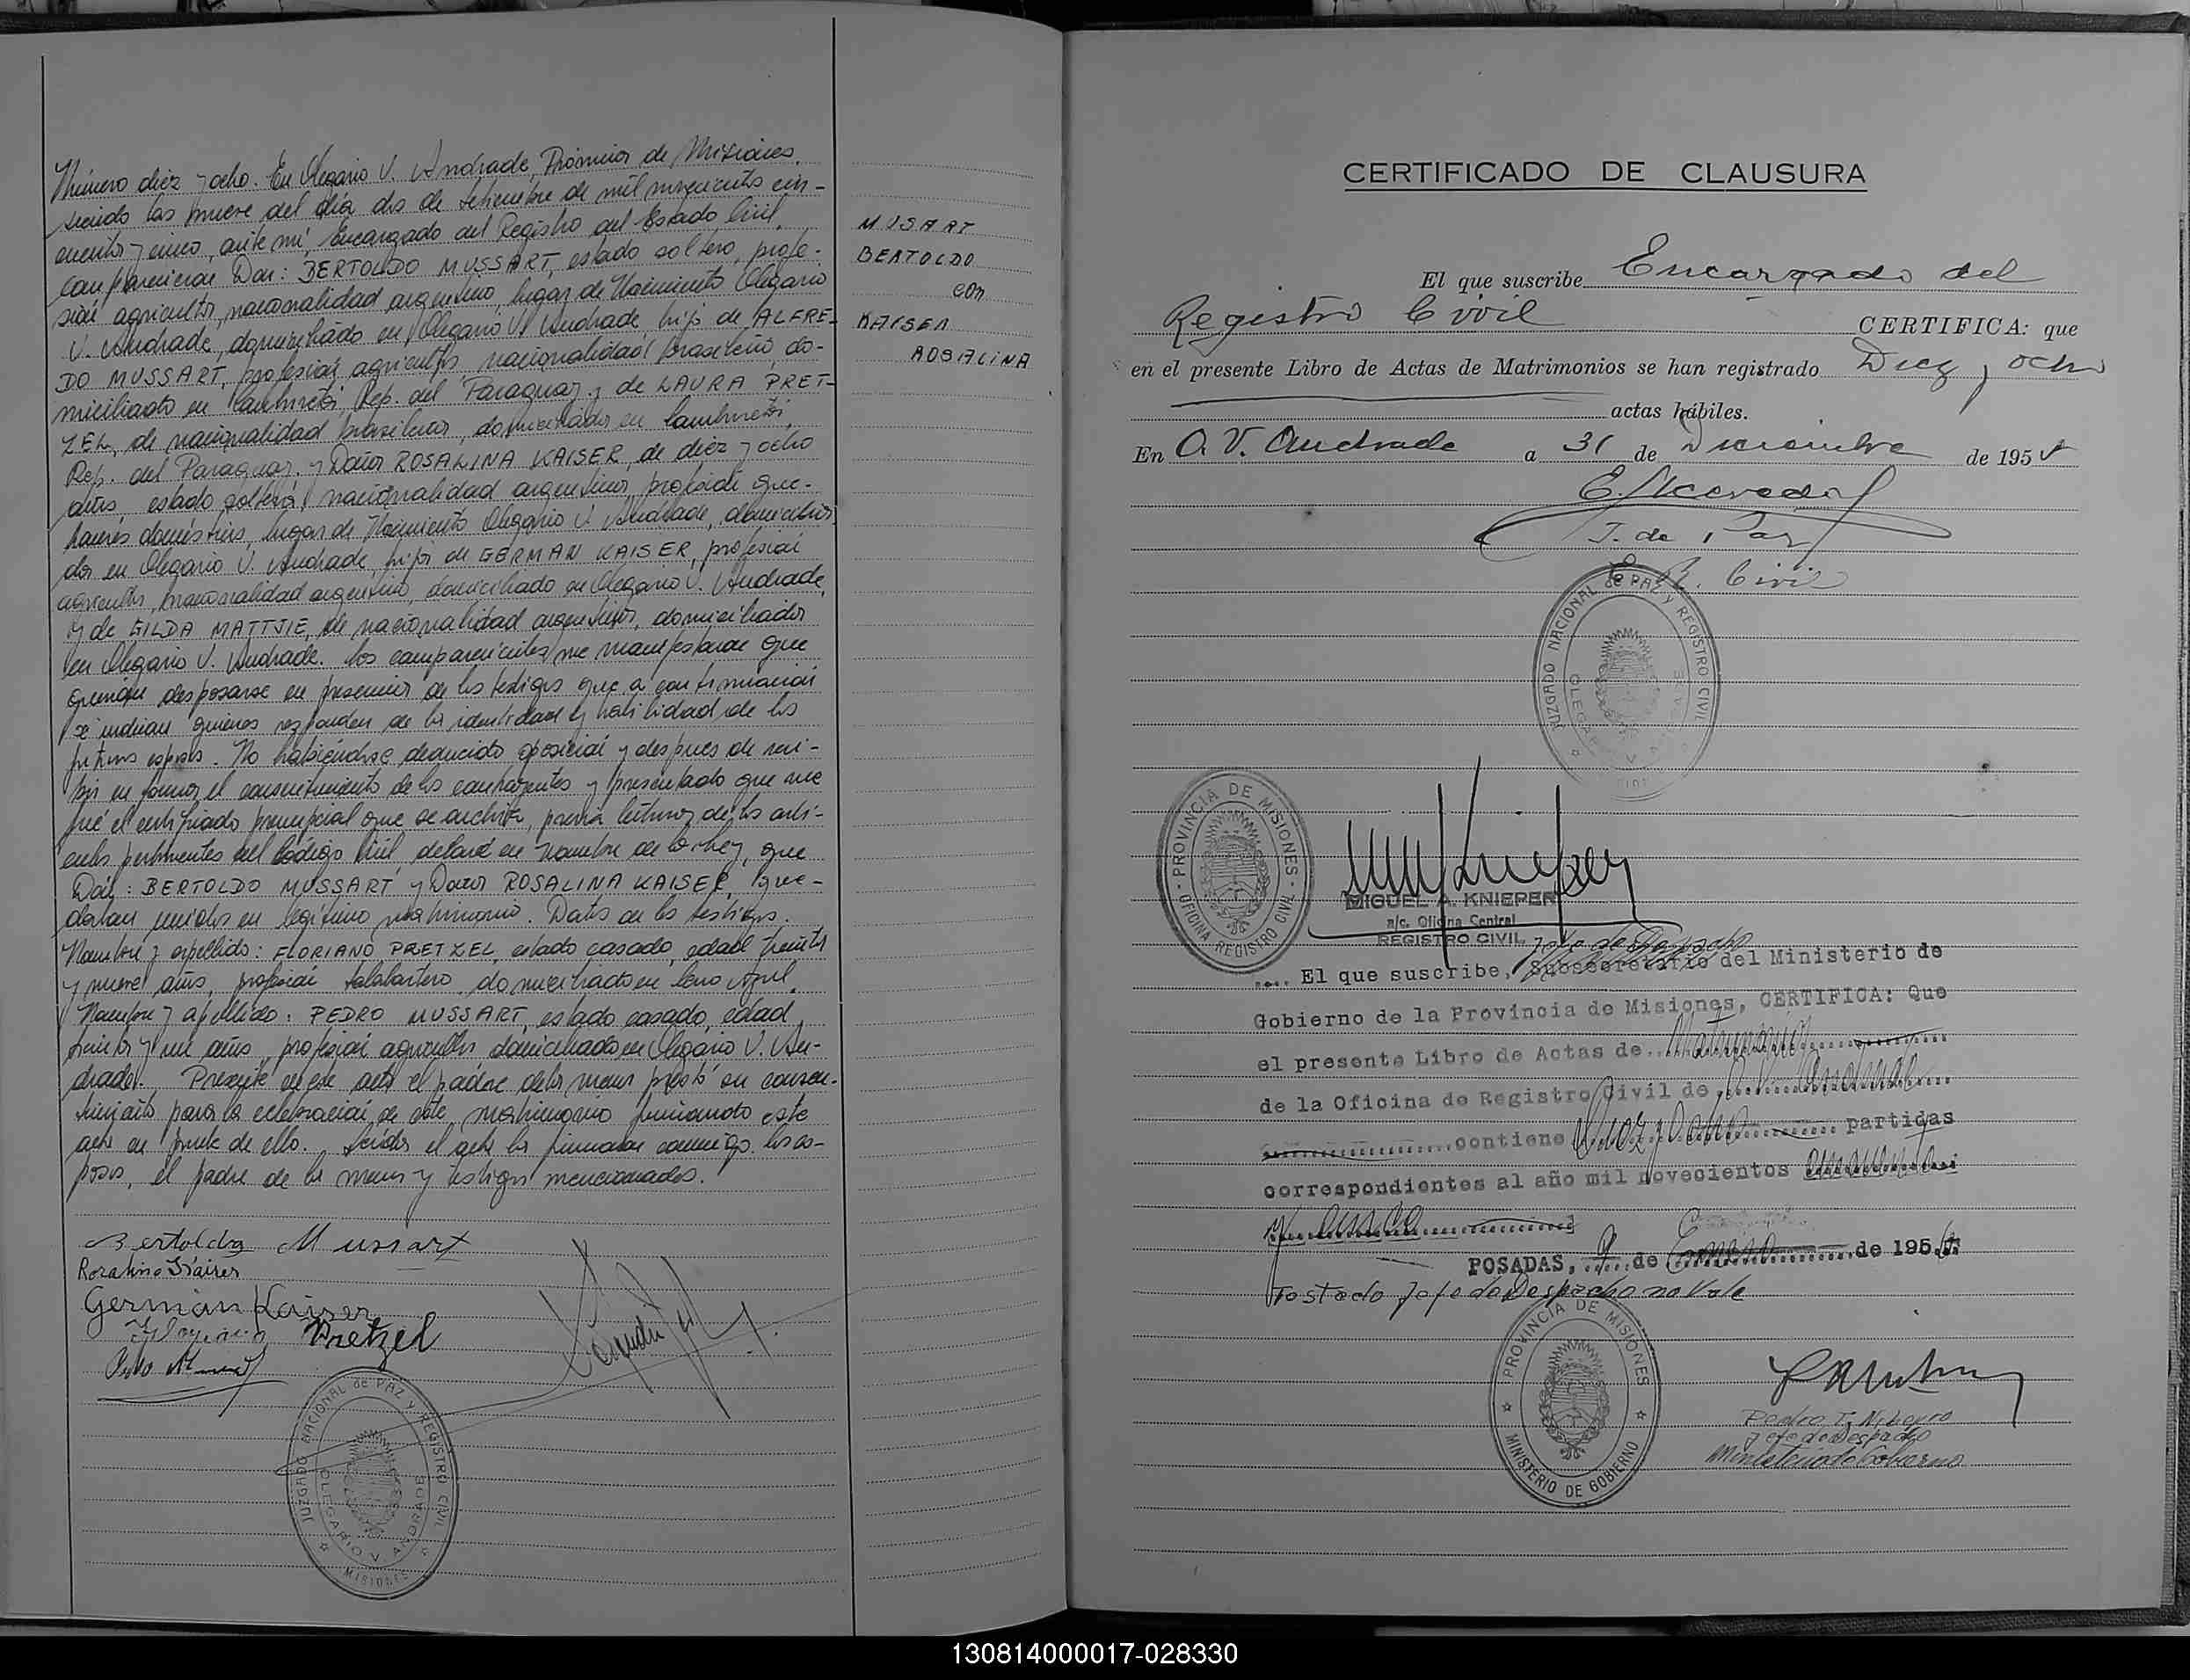 Número diez y ocho. En Olegario V. Andrade, Provincia de Misiones,
siendo las nueve del día dos de Setiembre de mil novecientos cin-
cuenta y cinco, ante mí, Encargado del Registro del Estado Civil,
comparecieron Don: BERTOLDO MUSSART, estado soltero, profe-
sión agricultor, nacionalidad argentino, lugar de Nacimiento Olegario
V. Andrade, domiciliado en Olegario V. Andrade, hijo de ALFRE-
DO MUSSART, profesión agricultor nacionalidad brasileño, do-
miciliado en Cambiretá, Rep. del Paraguay y de LAURA PRET-
ZEL, de nacionalidad brasilera, domiciliada en Cambiretá,
Rep. del Paraguay. y Doña ROSALINA KAISER, de diez y ocho
años, estado soltera, nacionalidad argentina, profesión que-
haceres domésticos, lugar de Nacimiento Olegario V. Andrade, domicilia-
da en Olegario V. Andrade, hija de GERMAN KAISER, profesión
agricultor, nacionalidad argentino, domiciliado en Olegario V. Andrade,
y de GILDA MATTJIE, de nacionalidad argentina, domiciliada
en Olegario V. Andrade. Los comparecientes me manifestaron que
querían desposarse en presencia de los testigos que a continuación
se indican quienes responden de la identidad y habilidad de los
futuros esposos. No habiéndose deducido oposición y despues de reci-
bir en forma el consentimiento de los contrayentes y presentado que me
fué el certificado prenupcial que se archiva, previa lectura de los artí-
culos pertinentes del Código Civil, declaré en nombre de la Ley, que
Don: BERTOLDO MUSSART y Doña ROSALINA KAISER, que-
daban unidos en legítimo matrimonio. Datos de los testigos.
Nombre y apellido: FLORIANO PRETZEL, estado casado, edad treinta
y nueve años, profesión talabartero, domiciliado en Cerro Azul.
Nombre y apellido: PEDRO MUSSART, estado casado, edad
treinta y un años, profesión agricultor domiciliado en Olegario V. An-
drade. Presente en este acto el padre de la menor prestó su consen-
timiento para la celebración de este matrimonio firmando este
acta en prueba de ello. Leída el acta la firmaron conmigo los es-
posos, el padre de la menor y testigos mencionados.
Bertoldo Mussart
Rosalina Kaiser
German Kaiser
Floriano Pretzel
JUZGADO NACIONAL de PAZ y REGISTRO CIVIL
OLEGARIO V. ANDRADE
MISIONES
MUSART
BERTOLDO
con
KAISER
ROSALINA
CERTIFICADO DE CLAUSURA
El que suscribe Encargado del
Registro Civil CERTIFICA: que
en el presente Libro de Actas de Matrimonios se han registrado Diez y ocho
actas hábiles.
En O. V. Andrade a 31 de Diciembre de 1955
E. Acevedo
J. de Paz
R. Civil
JUZGADO NACIONAL de PAZ y REGISTRO CIVIL
OLEGARIO V. ANDRADE
PROVINCIA DE MISIONES
OFICINA REGISTRO CIVIL
MIGUEL A. KNIEPER
a/c. Oficina Central
REGISTRO CIVIL
Jefe de Despacho
.... El que suscribe, Subsecretario del Ministerio de
Gobierno de la Provincia de Misiones, CERTIFICA: Que
el presente Libro de Actas de Matrimonios
de la Oficina de Registro Civil de O. V. Andrade
contiene Diez y Ocho partidas
correspondientes al año mil novecientos cincuenta
y cinco
POSADAS, 9 de Enero de 1956
Testado Jefe de Despacho no Vale
PROVINCIA DE MISIONES
MINISTERIO DE GOBIERNO
Jefe de Despacho
Ministerio de Gobierno
130814000017-028330